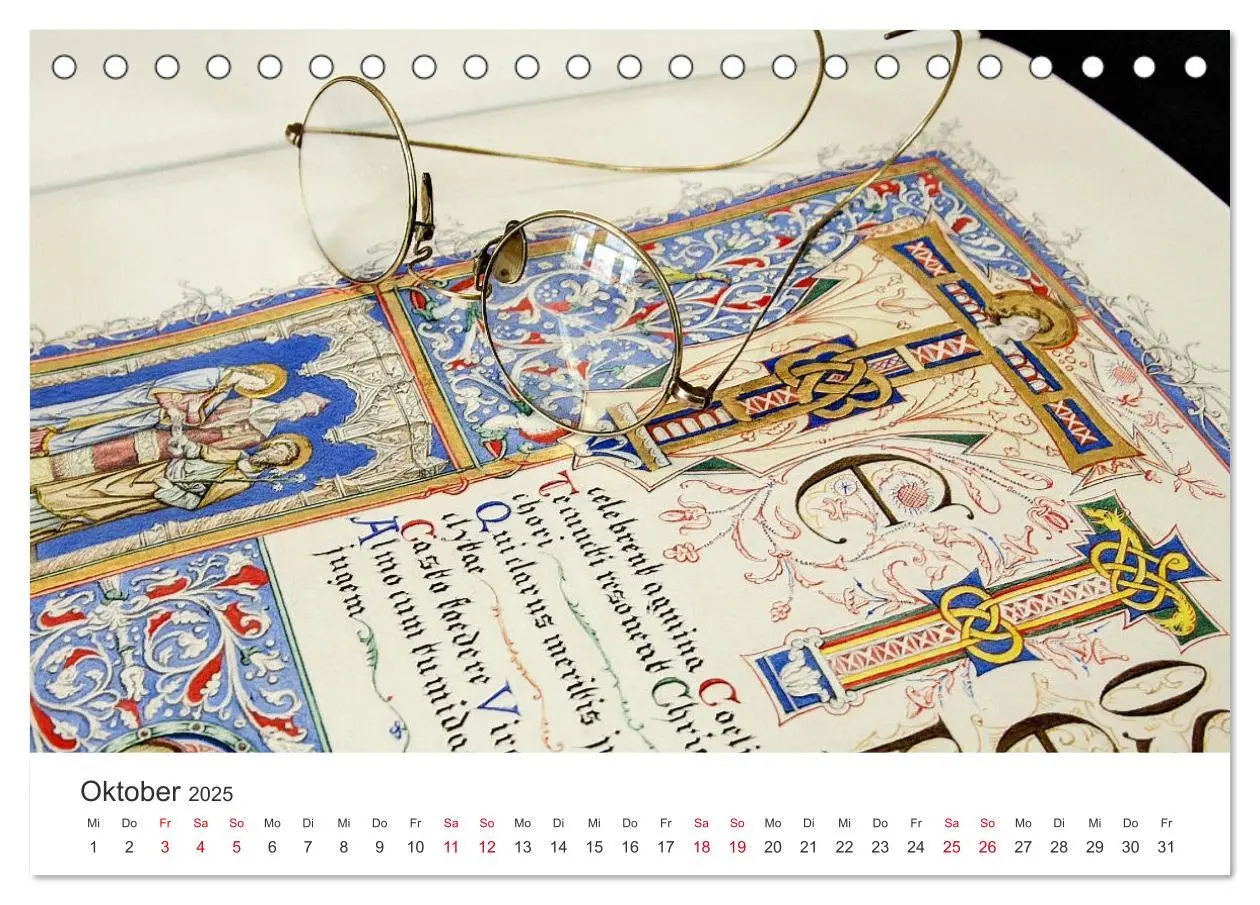 TE
celebrent agmina Coeli
Te cuncti resonent Chri
chori
Qui clarus meritis j
clytae
Casto foedere Vir
Almo cum tumida
jugem
Oktober 2025
Mi Do Fr Sa So Mo Di Mi Do Fr Sa So Mo Di Mi Do Fr Sa So Mo Di Mi Do Fr Sa So Mo Di Mi Do Fr
1 2 3 4 5 6 7 8 9 10 11 12 13 14 15 16 17 18 19 20 21 22 23 24 25 26 27 28 29 30 31